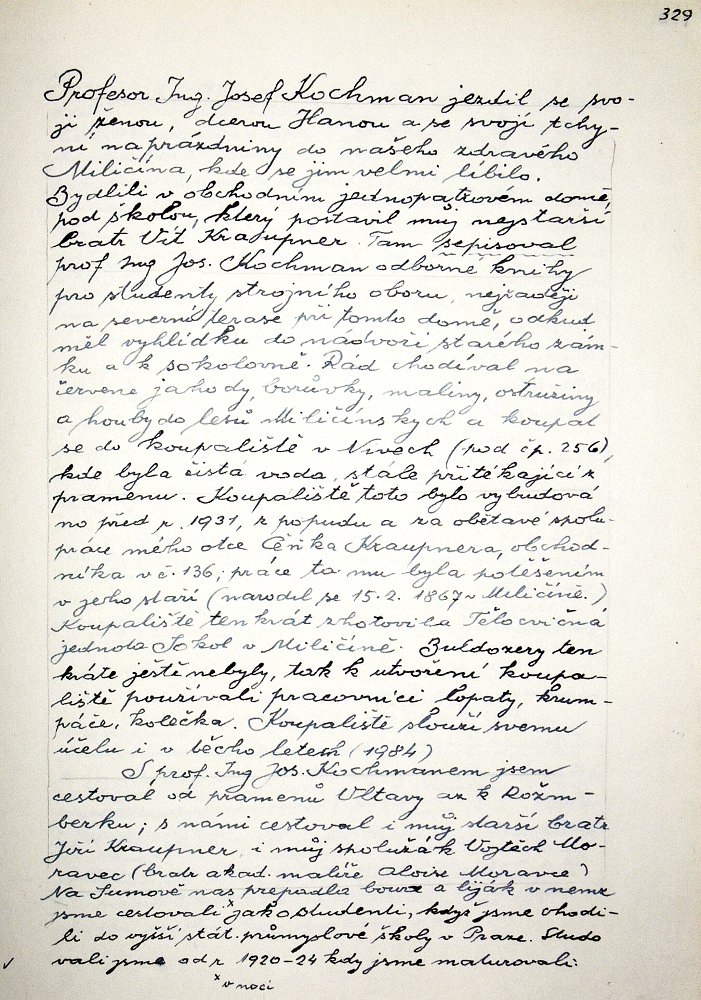 329
Profesor Ing. Josef Kochman jezdil se svo-
ji ženou, dcerou Hanou a se svojí tchy-
ní na prázdniny do našeho zdravého
Miličína, kde se jim velmi líbilo.
Bydlili v obchodním jednopatrovém domě,
pod školou, který postavil můj nejstarší
bratr Vít Kraupner. Tam sepisoval
prof Ing Jos. Kochman odborné knihy
pro studenty strojního oboru, nejraději
na severní terase při tomto domě, odkud
měl vyhlídku do nádvoří starého zám-
ku a k sokolovně. Rád chodíval na
červené jahody, borůvky, maliny, ostružiny
a houby do lesů Miličínských a koupat
se do koupaliště v Nivech (pod čp. 256),
kde byla čistá voda, stále přitékající z
pramenu. Koupaliště toto bylo vybudová
no před r. 1931, z popudu a za obětavé spolu-
práce mého otce Čeňka Kraupnera, obchod-
níka v č. 136; práce ta mu byla potěšením
v jeho stáří (narodil se 15.2. 1867 v Miličíně.)
Koupaliště tenkrát zhotovila Tělocvičná
jednota Sokol v Miličíně. Buldozery ten
kráte ještě nebyly, tak k utvoření koupa-
liště používali pracovníci lopaty, krum-
páče, kolečka. Koupaliště slouží svemu
účelu i v těcho letech (1984)
S prof. Ing Jos. Kochmanem jsem
cestoval od pramenů Vltavy až k Rožm-
berku; s námi cestoval i můj starší bratr
Jiří Kraupner, i můj spolužák Vojtěch Mo-
ravec (bratr akad. malíře Aloise Moravce)
Na Šumavě nas přepadla bouře a liják v nemž
jsme cestovali x jako studenti, když jsme chodi-
li do vyšší stát. průmyslové školy v Praze. Studo
vali jsme od r 1920-24 kdy jsme maturovali.
x v noci